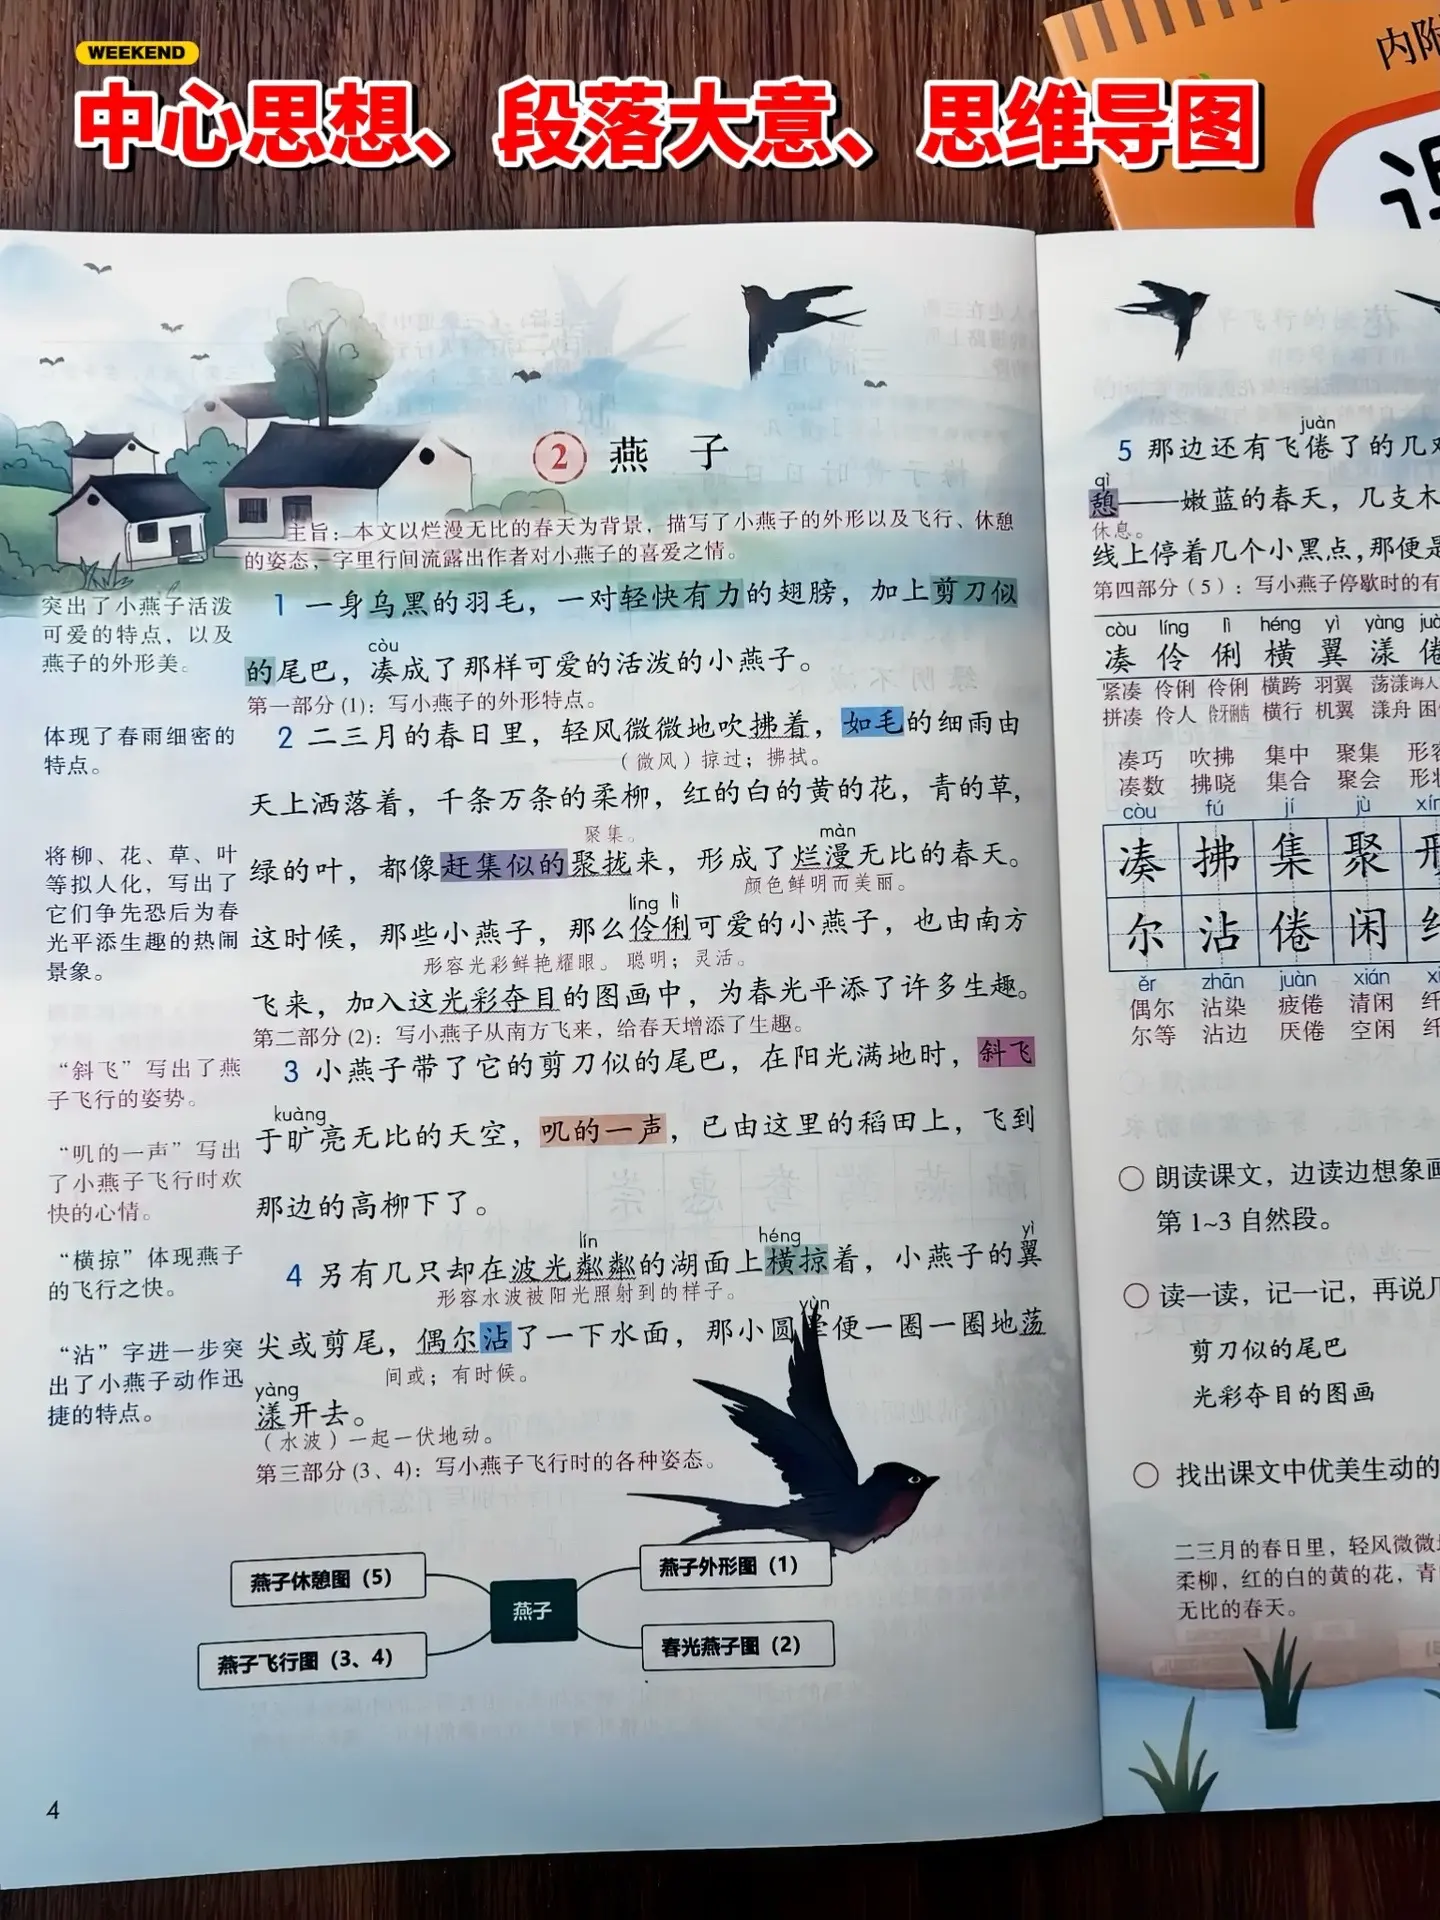 WEEKEND
中心思想、段落大意、思维导图
内附
② 燕 子
主旨：本文以烂漫无比的春天为背景，描写了小燕子的外形以及飞行、休憩
的姿态，字里行间流露出作者对小燕子的喜爱之情。
突出了小燕子活泼
可爱的特点，以及
燕子的外形美。
1 一身乌黑的羽毛，一对轻快有力的翅膀，加上剪刀似
còu
的尾巴，凑成了那样可爱的活泼的小燕子。
第一部分(1)：写小燕子的外形特点。
体现了春雨细密的
特点。
2 二三月的春日里，轻风微微地吹拂着，如毛的细雨由
（微风）掠过；拂拭。
天上洒落着，千条万条的柔柳，红的白的黄的花，青的草，
聚集。
màn
将柳、花、草、叶
等拟人化，写出了
它们争先恐后为春
光平添生趣的热闹
景象。
绿的叶，都像赶集似的聚拢来，形成了烂漫无比的春天。
颜色鲜明而美丽。
líng lì
这时候，那些小燕子，那么伶俐可爱的小燕子，也由南方
形容光彩鲜艳耀眼。 聪明；灵活。
飞来，加入这光彩夺目的图画中，为春光平添了许多生趣。
第二部分(2)：写小燕子从南方飞来，给春天增添了生趣。
“斜飞”写出了燕
子飞行的姿势。
3 小燕子带了它的剪刀似的尾巴，在阳光满地时，斜飞
kuàng
于旷亮无比的天空，叽的一声，已由这里的稻田上，飞到
“叽的一声”写出
了小燕子飞行时欢
快的心情。
那边的高柳下了。
“横掠”体现燕子
的飞行之快。
lín héng yì
4 另有几只却在波光粼粼的湖面上横掠着，小燕子的翼
形容水波被阳光照射到的样子。
yùn
“沾”字进一步突
出了小燕子动作迅
捷的特点。
尖或剪尾，偶尔沾了一下水面，那小圆晕便一圈一圈地荡
间或；有时候。
yàng
漾开去。
（水波）一起一伏地动。
第三部分(3、4)：写小燕子飞行时的各种姿态。
燕子休憩图（5）
燕子外形图（1）
燕子
燕子飞行图（3、4）
春光燕子图（2）
4
juàn
5 那边还有飞倦了的几
qì
憩——嫩蓝的春天，几支木
休息。
线上停着几个小黑点，那便是
第四部分（5）：写小燕子停歇时的有
còu líng lì héng yì yàng
凑 伶 俐 横 翼 漾
紧凑 伶俐 伶俐 横跨 羽翼 荡漾
拼凑 伶人 横行 机翼 漾舟
凑巧 吹拂 集中 聚集
凑数 拂晓 集合 聚会
còu fú jí jù
凑 拂 集 聚
尔 沾 倦 闲
ěr zhān juàn xián
偶尔 沾染 疲倦 清闲
尔等 沾边 厌倦 空闲
○ 朗读课文，边读边想象画
第1~3自然段。
○ 读一读，记一记，再说几
剪刀似的尾巴
光彩夺目的图画
○ 找出课文中优美生动的
二三月的春日里，轻风微微
柔柳，红的白的黄的花，青
无比的春天。